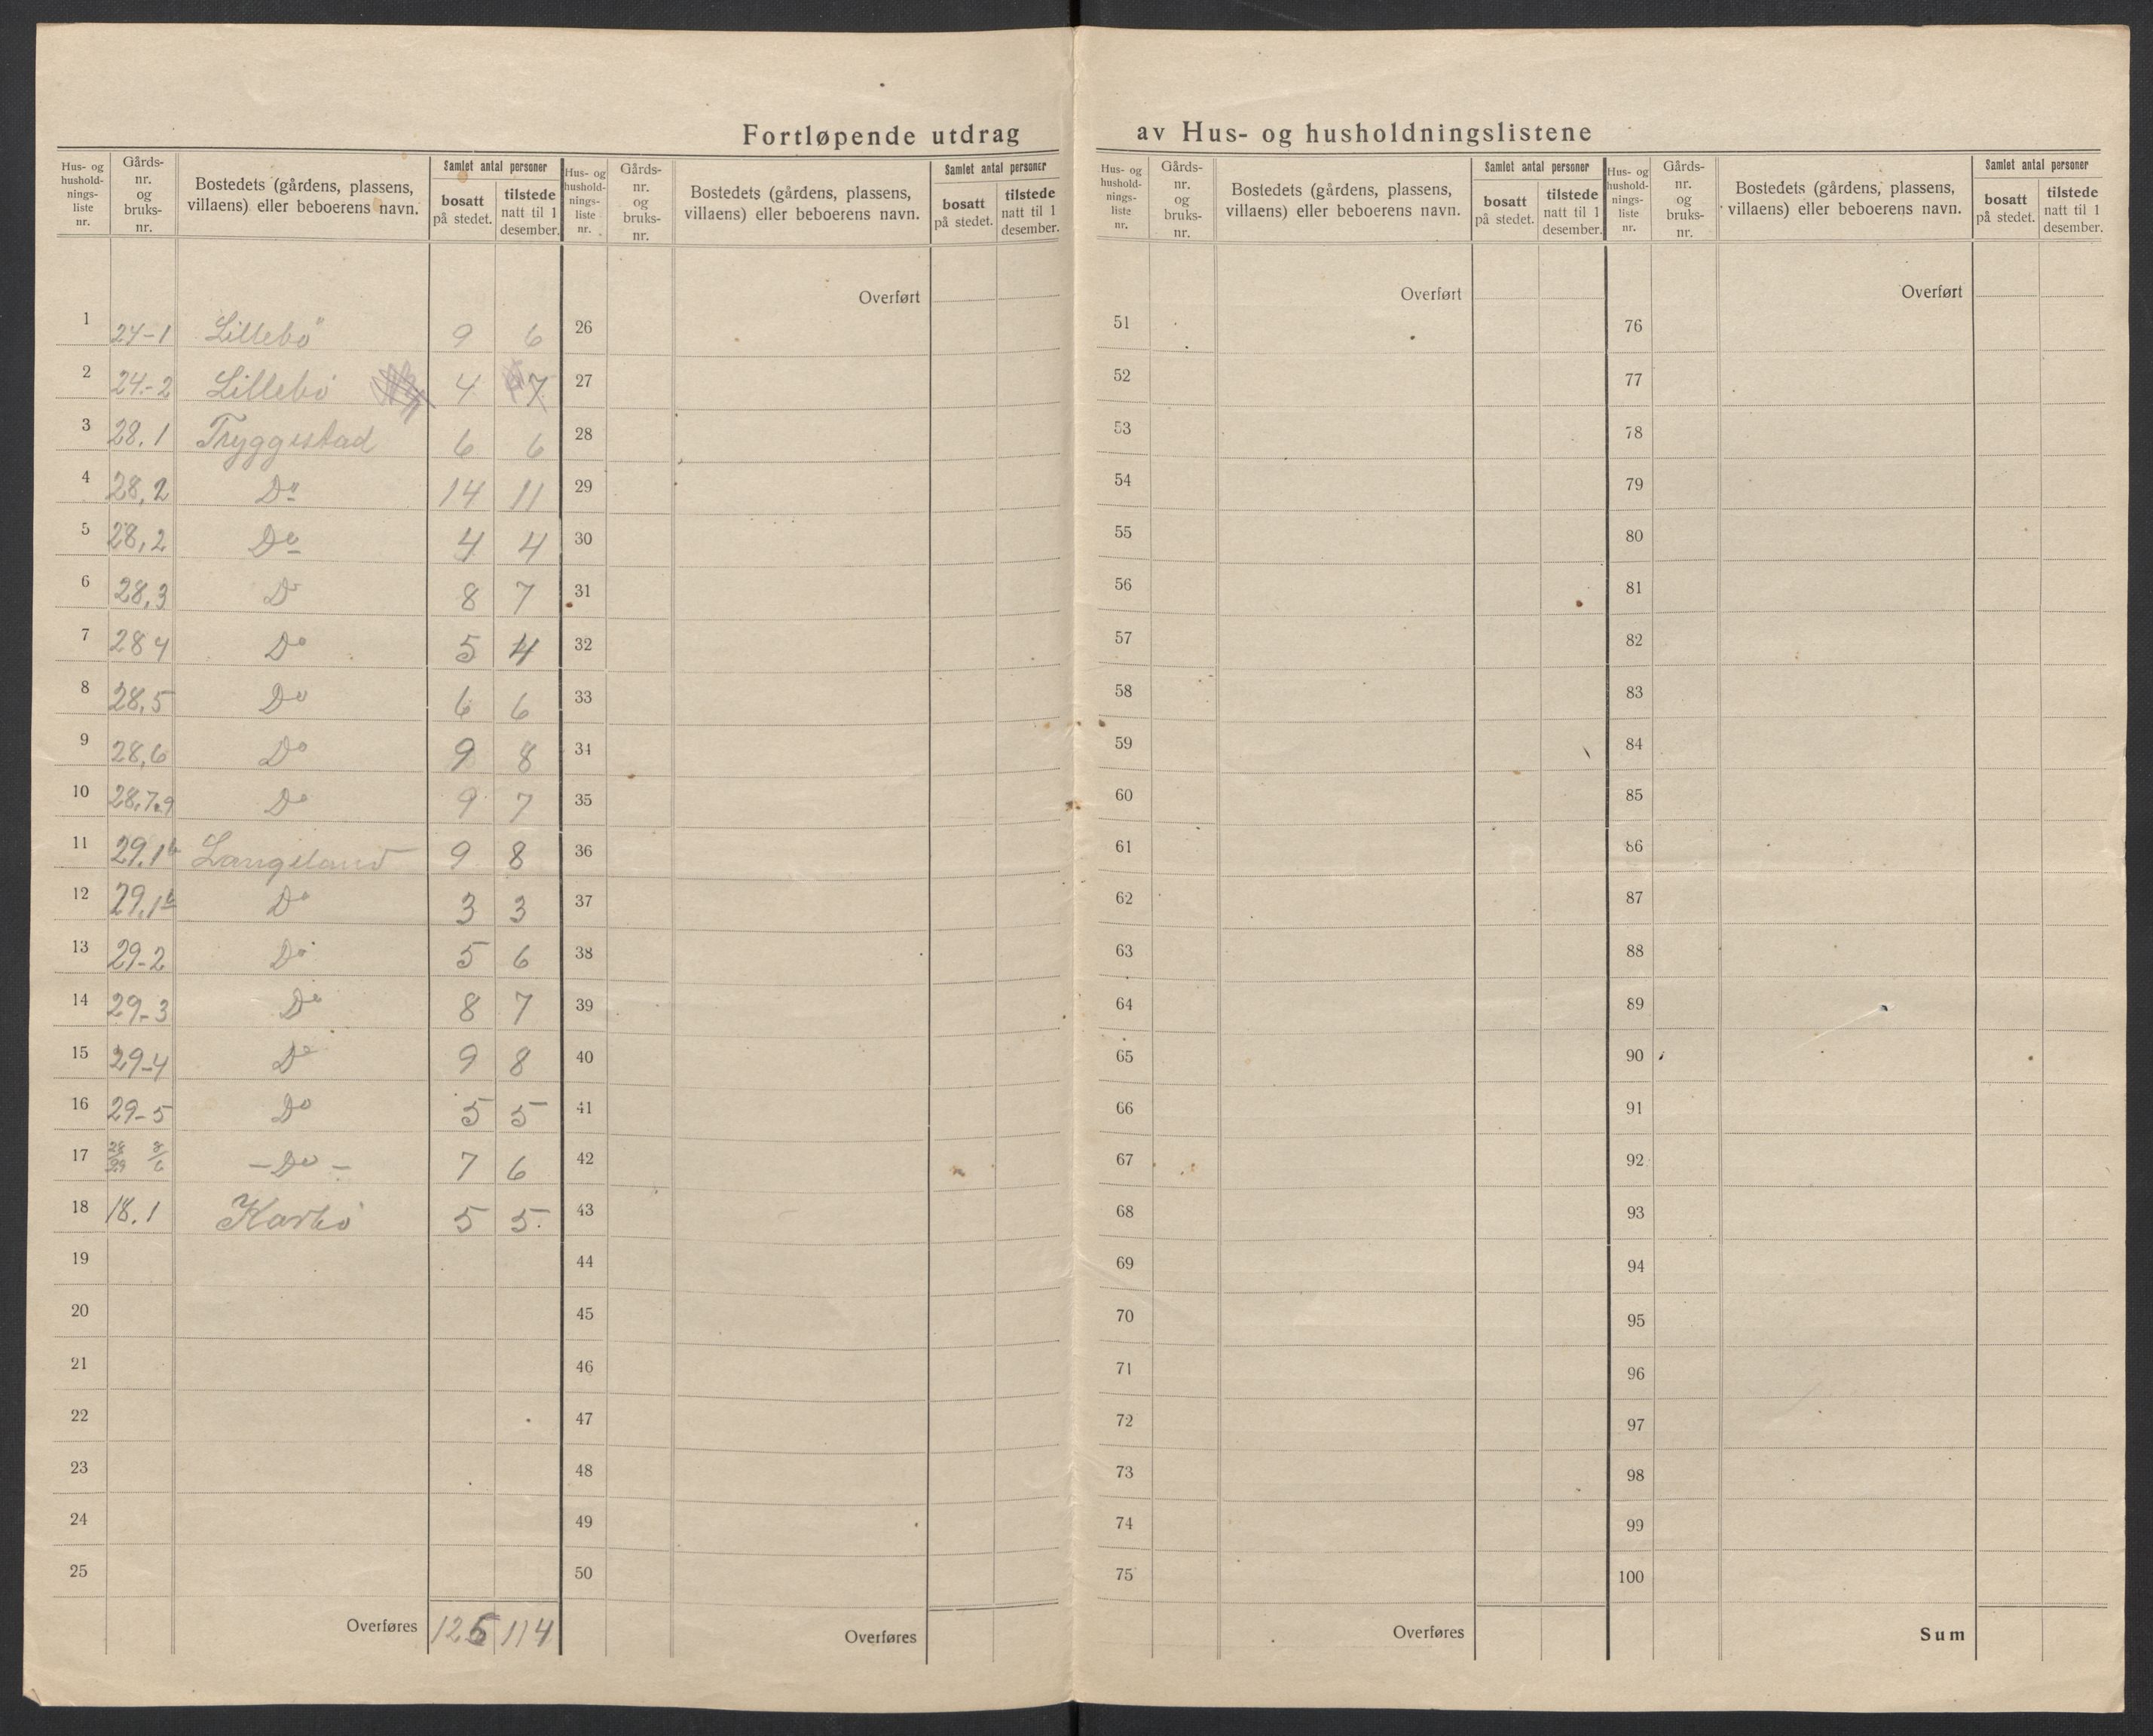 Fortløpende utdrag av Hus- og husholdningslistene
Hus- og hushold- nings- liste nr. | Gårds- nr. og bruks- nr. | Bostedets (gårdens, plassens, villaens) eller beboerens navn. | Samlet antal personer | bosatt på stedet. | tilstede natt til 1 desember.
1 24-1 Lillebö 9 6
2 24-2 Lillebö 4 7
3 28.1 Tryggestad 6 6
4 28,2 Do 14 11
5 28,2 Do 4 4
6 28,3 Do 8 7
7 28 4 Do 5 4
8 28,5 Do 6 6
9 28,6 Do 9 8
10 28,7.9 Do 9 7
11 29.1a Langeland 9 8
12 29.1b Do 3 3
13 29-2 Do 5 6
14 29-3 Do 8 7
15 29-4 Do 9 8
16 29-5 Do 5 5
17 28/29 8/6 -Do- 7 6
18 18.1 Karbö 5 5.
19
20
21
22
23
24
25
Overføres 125 114
Hus- og hushold- nings- liste nr. | Gårds- nr. og bruks- nr. | Bostedets (gårdens, plassens, villaens) eller beboerens navn. | Samlet antal personer | bosatt på stedet. | tilstede natt til 1 desember.
Overført
26
27
28
29
30
31
32
33
34
35
36
37
38
39
40
41
42
43
44
45
46
47
48
49
50
Overføres
Hus- og hushold- nings- liste nr. | Gårds- nr. og bruks- nr. | Bostedets (gårdens, plassens, villaens) eller beboerens navn. | Samlet antal personer | bosatt på stedet. | tilstede natt til 1 desember.
Overført
51
52
53
54
55
56
57
58
59
60
61
62
63
64
65
66
67
68
69
70
71
72
73
74
75
Overføres
Hus- og hushold- nings- liste nr. | Gårds- nr. og bruks- nr. | Bostedets (gårdens, plassens, villaens) eller beboerens navn. | Samlet antal personer | bosatt på stedet. | tilstede natt til 1 desember.
Overført
76
77
78
79
80
81
82
83
84
85
86
87
88
89
90
91
92
93
94
95
96
97
98
99
100
Sum